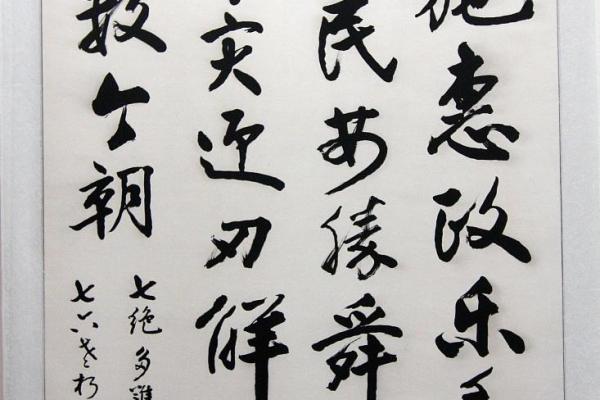 施惠政乐
民安勝舜
实迎刃解
今朝
七绝多難
七六老朽